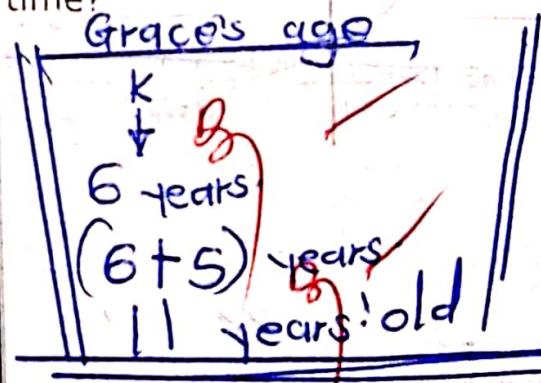 time?
Grace's age
K
↓
6 years
(6+5) years
11 years' old